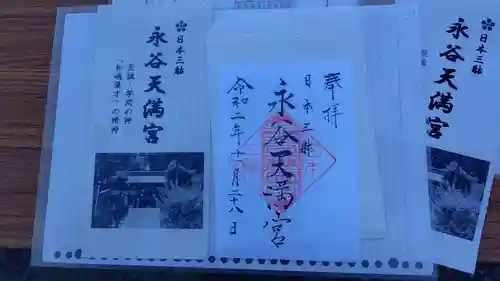 日本三躰
永谷天満宮
至誠・学問の神
「和魂漢才」の精神
奉拝
日本三躰
永谷天満宮
令和二年十月二十八日
日本三躰
永谷天満宮